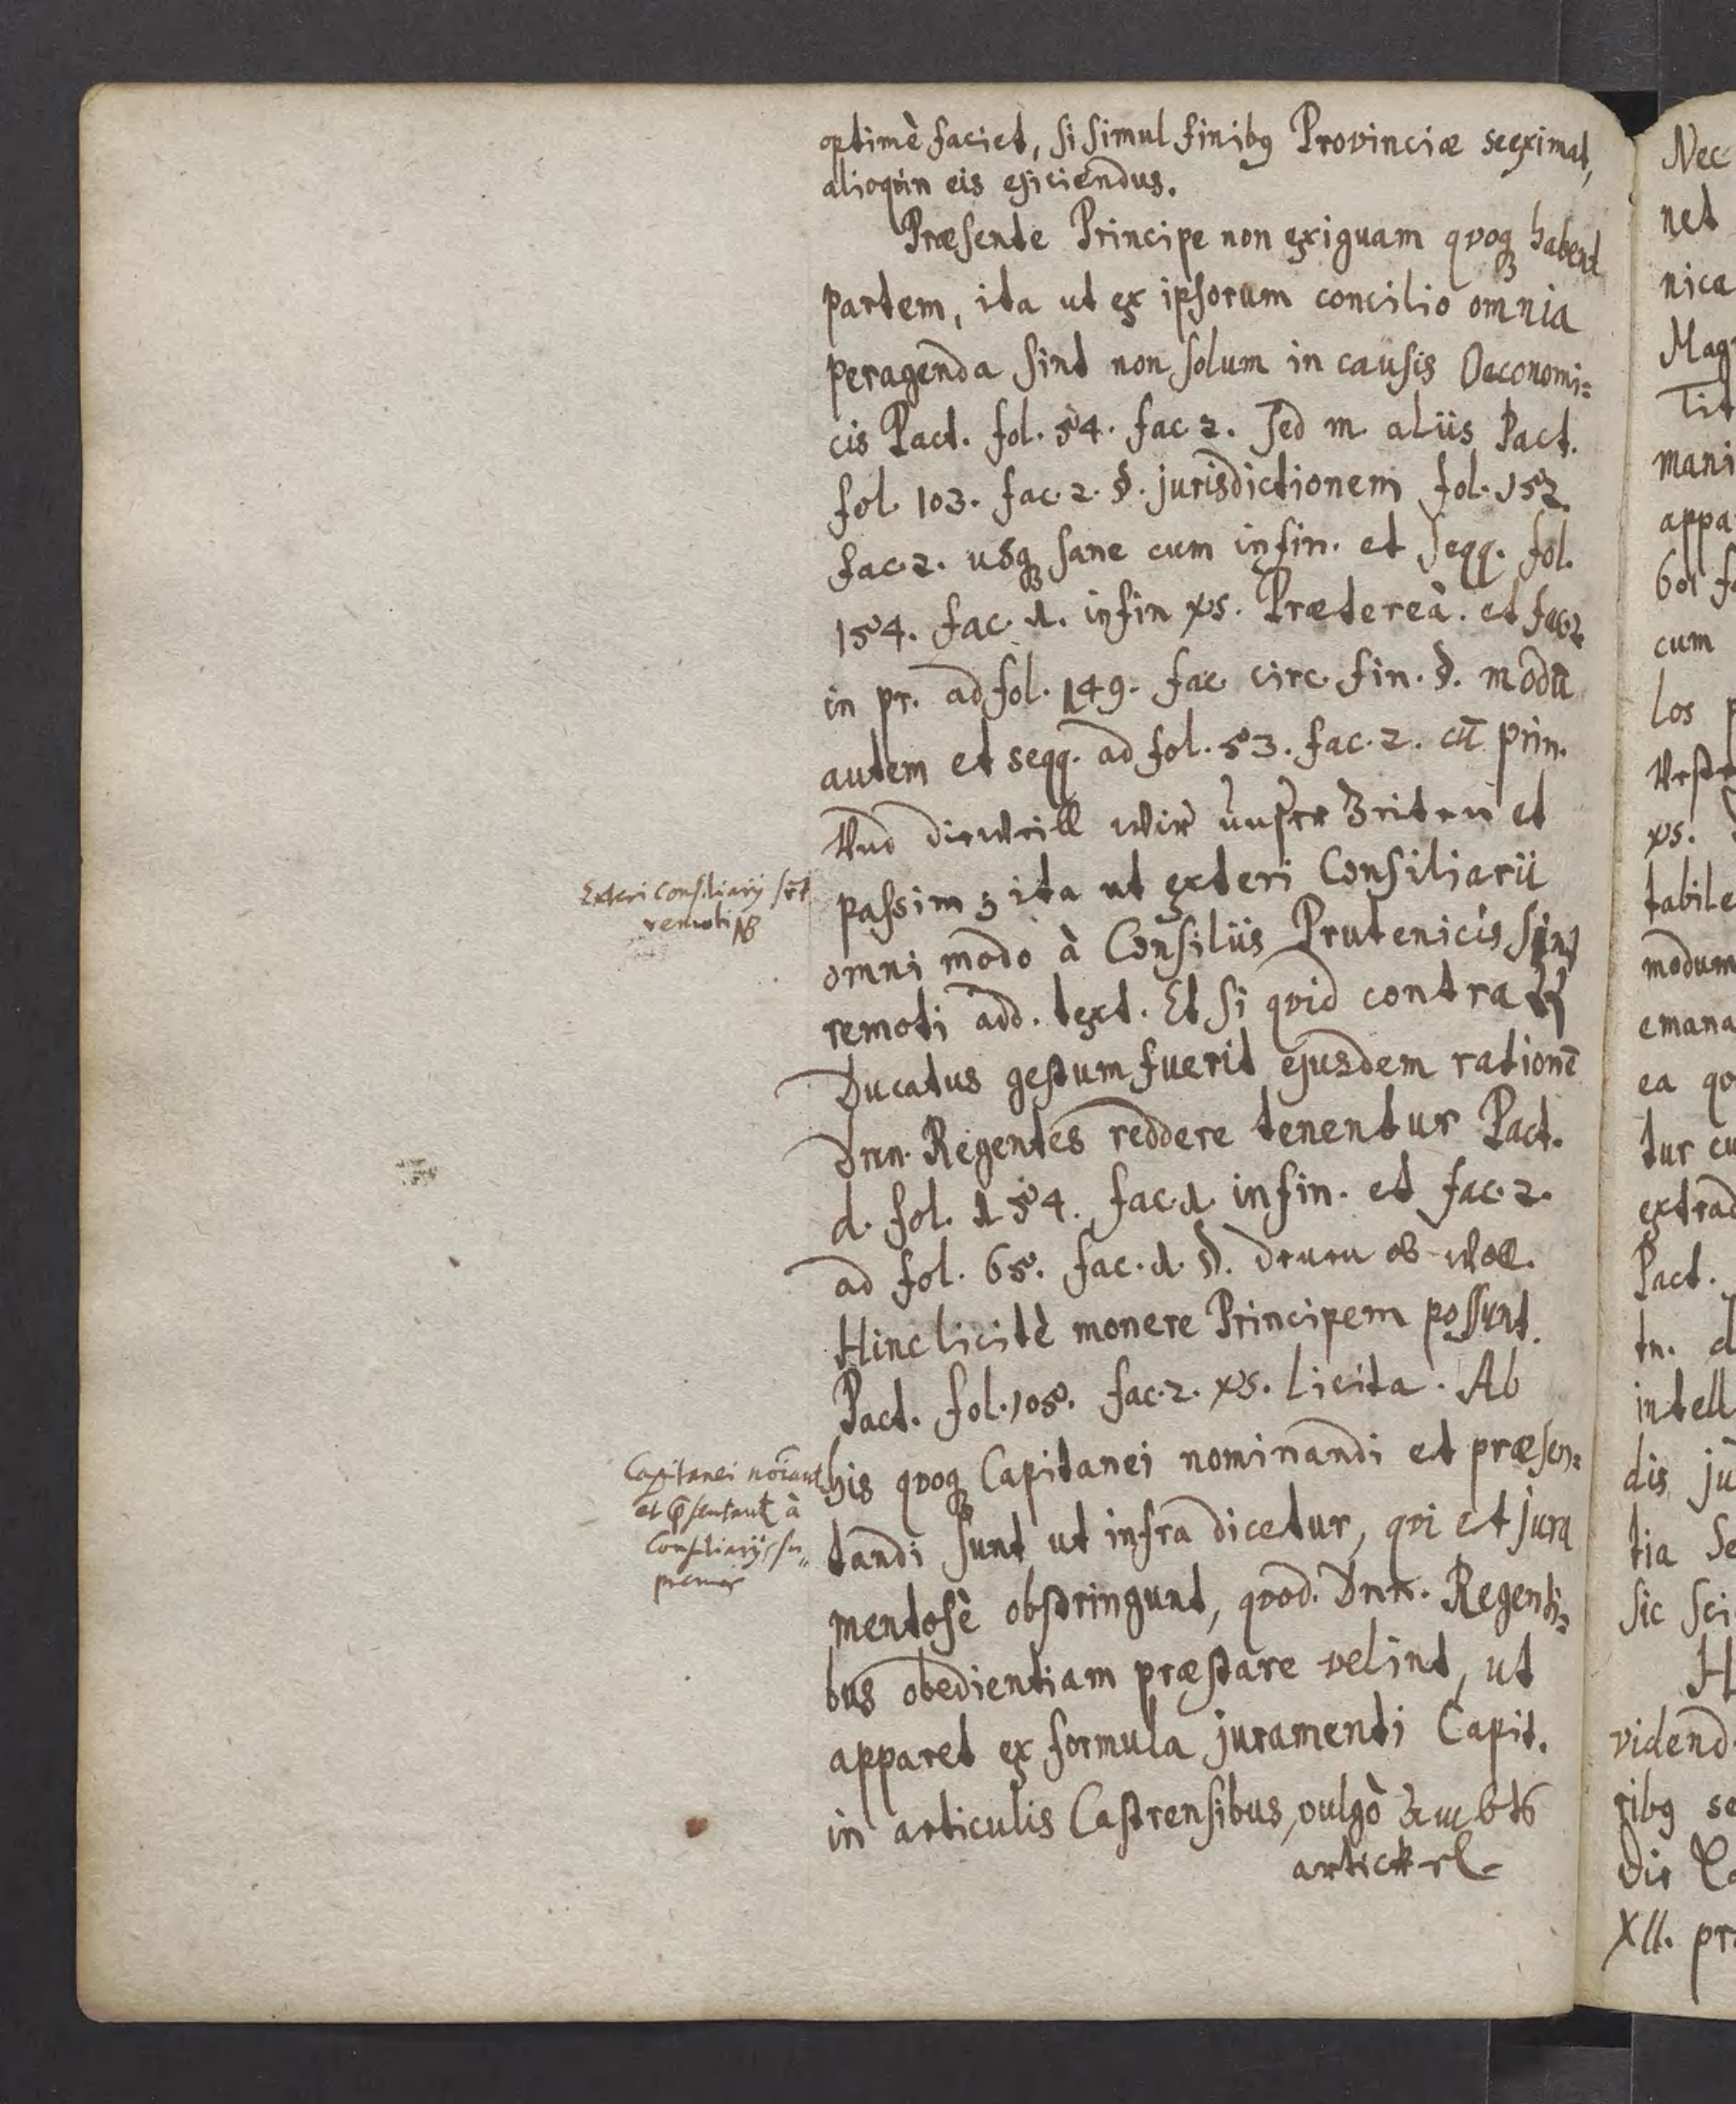 optimè faciet, si simul finibꝰ Provinciæ se eximat,
alioqvin eis ejiciendus.
Præsente Principe non exiguam qvoqꝫ habent
partem, ita ut ex ipsorum concilio omnia
peragenda sint non solum in causis Oeconomi=
cis Pact. fol. 54. fac 2. Sed m aliis Pact.
fol. 103. fac. 2. §. jurisdictionem fol. 152.
fac. 2. usqꝫ sane cum in fin. et seqq. fol.
154. fac. 1. in fin vs. Prætereà. et fac. 2
in pr. ad fol. 149. fac circ. fin. §. modū
autem et seqq. ad fol. 53. fac. 2. cū prin.
Und dieweill wir unser Zeiten et
Exteri Consiliarij sūt
remoti NB
passim ; ita ut exteri Consiliarii
omni modo à Consiliis Prutenicis sint
remoti add. text. Et si qvid contra
Ducatus gestum fuerit ejusdem rationē
Dnn. Regentes reddere tenentur Pact.
d. fol. 154. fac. 1 in fin. et fac. 2.
ad fol. 65. fac. 1. §. Denen ob woll.
Hinc licitè monere Principem possunt.
Pact. fol. 105. fac. 2. vs. Licita. Ab
Capitanei nōiant
et p̄sentant à
Consiliarijs su„
premis
his qvoqꝫ Capitanei nominandi et præsen=
tandi sunt ut infra dicetur, qvi et jura
mentosè obstringunt, qvod. Dnn. Regenti=
bus obedientiam præstare velint, ut
apparet ex formula juramenti Capit.
in articulis Castrensibus, vulgò Ambts
artickel
Nec
net
nica
Mag
Tit
mani
appa
601 f
cum
los p
vs.
tabile
modum
emana
ea qv
tur cu
extrad
Pact.
tn. d
intell
dis ju
tia Se
sic sci
H
vidend
ribꝰ se
Die
XII. pr